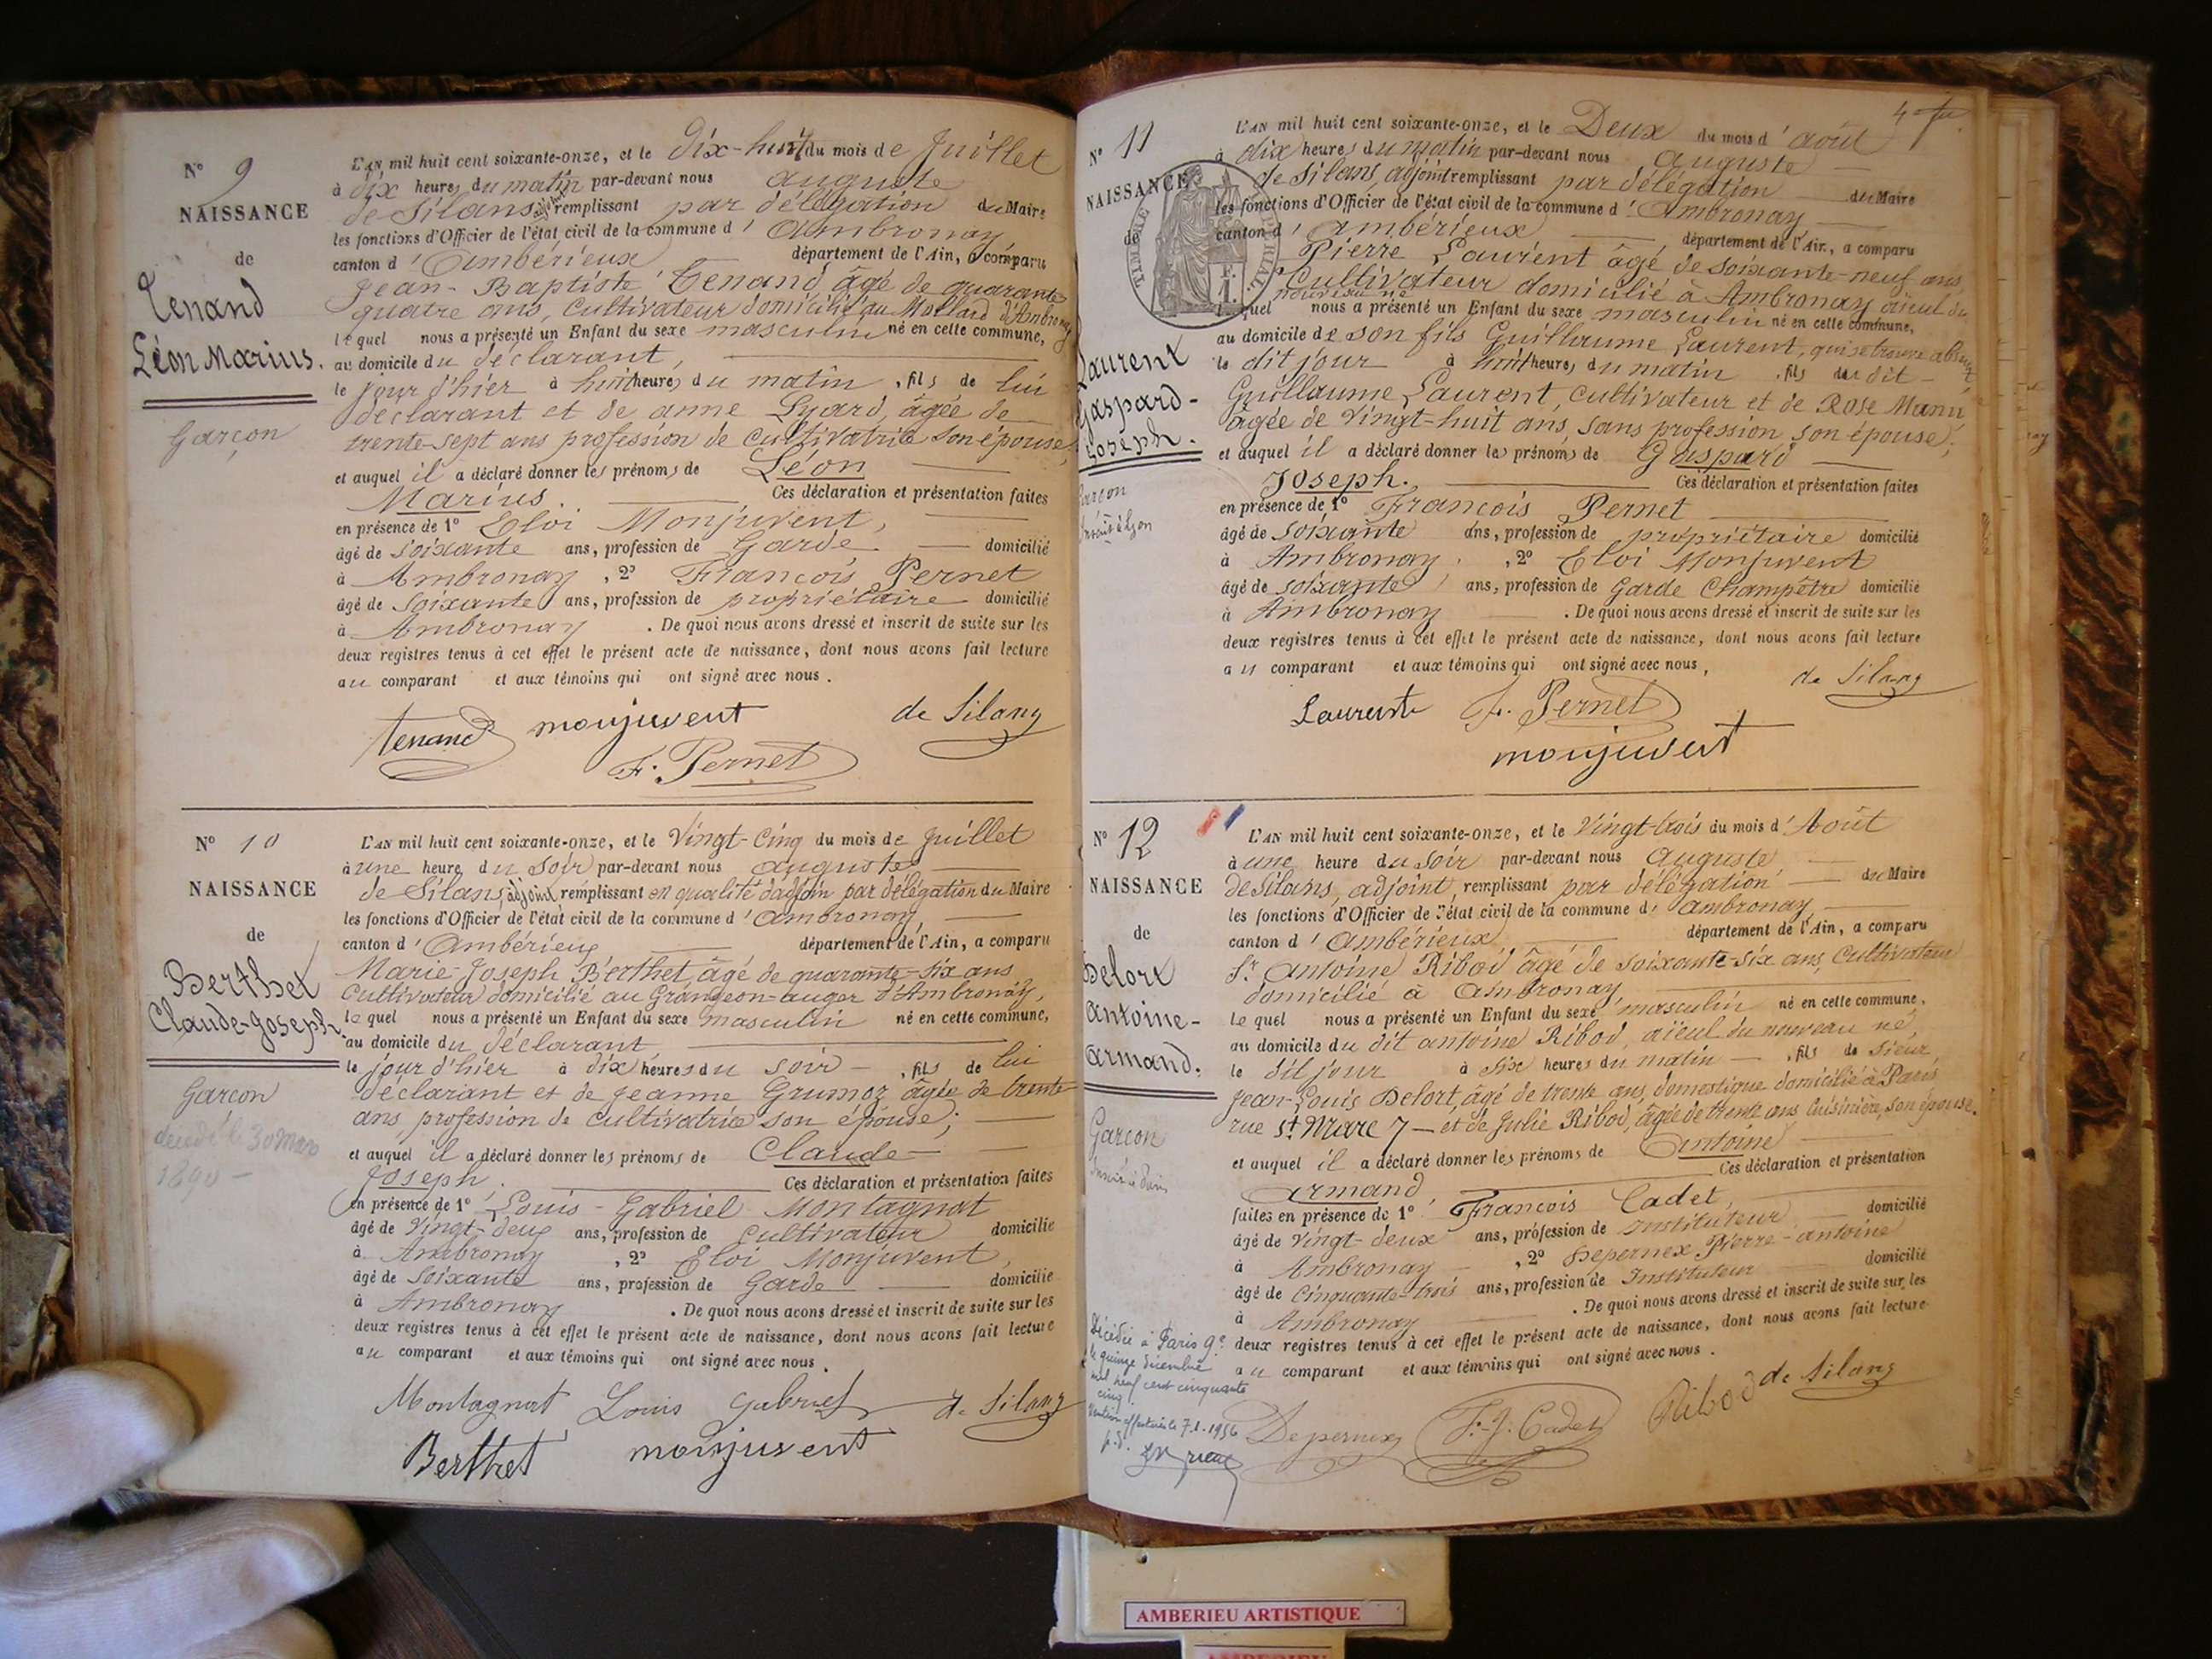 N° 9
NAISSANCE
de
Tenand
Léon Marius.
Garçon
L'AN mil huit cent soixante-onze, et le Dix-huit du mois de Juillet
à dix heures du matin par-devant nous auguste
de Silans, adjoint remplissant par délégation du Maire
les fonctions d'Officier de l'état civil de la commune d'Ambronay
canton d'Ambérieux département de l'Ain, a comparu
Jean-Baptiste Tenand, âgé de quarante
quatre ans, cultivateur domicilié au Mollard d'Ambronay
lequel nous a présenté un Enfant du sexe masculin né en cette commune,
au domicile du déclarant,
le jour d'hier à huit heures du matin, fils de lui
déclarant et de anne Lyard, âgée de
trente-sept ans profession de cultivatrice son épouse,
et auquel il a déclaré donner les prénoms de Léon
Marius. Ces déclaration et présentation faites
en présence de 1° Eloi Monjuvent,
âgé de soixante ans, profession de Garde domicilié
à Ambronay, 2° François Pernet
âgé de soixante ans, profession de propriétaire domicilié
à Ambronay. De quoi nous avons dressé et inscrit de suite sur les
deux registres tenus à cet effet le présent acte de naissance, dont nous avons fait lecture
au comparant et aux témoins qui ont signé avec nous.
Tenand monjuvent de Silans
F. Pernet
N° 10
NAISSANCE
de
Berthet
Claude-Joseph.
Garçon
décédé le 30 mars
1890 -
L'AN mil huit cent soixante-onze, et le Vingt-Cinq du mois de Juillet
à une heure du Soir par-devant nous auguste
de Silans, adjoint remplissant en qualité d'adjoin par délégation du Maire
les fonctions d'Officier de l'état civil de la commune d'Ambronay,
canton d'Ambérieux département de l'Ain, a comparu
Marie-Joseph Berthet âgé de quarante-six ans
Cultivateur domicilié au Grangeon-auger d'Ambronay,
lequel nous a présenté un Enfant du sexe masculin né en cette commune,
au domicile du déclarant
le jour d'hier à dix heures du soir -, fils de lui
déclarant et de Jeanne Grumoz âgée de trente
ans, profession de cultivatrice son épouse;
et auquel il a déclaré donner les prénoms de Claude-
Joseph. Ces déclaration et présentation faites
en présence de 1° Louis-Gabriel Montagnat
âgé de Vingt-deux ans, profession de Cultivateur domicilié
à Ambronay, 2° Eloi Monjuvent,
âgé de Soixante ans, profession de Garde domicilié
à Ambronay. De quoi nous avons dressé et inscrit de suite sur les
deux registres tenus à cet effet le présent acte de naissance, dont nous avons fait lecture
au comparant et aux témoins qui ont signé avec nous.
Montagnat Louis Gabriel de Silans
Berthet monjuvent
N° 11
NAISSANCE
de
Laurent
Gaspard-
Joseph.
Garçon
TIMBRE IMPÉRIAL
1 F.
L'AN mil huit cent soixante-onze, et le Deux du mois d'août
à dix heures du matin par-devant nous auguste
de Silans, adjoint remplissant par délégation du Maire
les fonctions d'Officier de l'état civil de la commune d'Ambronay
canton d'Ambérieux département de l'Ain, a comparu
Pierre Laurent âgé de soixante-neuf ans,
Cultivateur domicilié à Ambronay aïeul du
nouveau né
lequel nous a présenté un Enfant du sexe masculin né en cette commune,
au domicile de son fils Guillaume Laurent, qui se trouve absent
le dit jour à huit heures du matin, fils du dit -
Guillaume Laurent, cultivateur et de Rose
âgée de Vingt-huit ans, sans profession, son épouse;
et auquel il a déclaré donner les prénoms de Gaspard
Joseph. Ces déclaration et présentation faites
en présence de 1° François Pernet
âgé de soixante ans, profession de propriétaire domicilié
à Ambronay. , 2° Eloi Monjuvent
âgé de soixante ans, profession de Garde Champêtre domicilié
à Ambronay. De quoi nous avons dressé et inscrit de suite sur les
deux registres tenus à cet effet le présent acte de naissance, dont nous avons fait lecture
au comparant et aux témoins qui ont signé avec nous,
de Silans
F. Pernet
monjuvent
N° 12
NAISSANCE
de
Delort
Antoine-
armand.
Garçon
Décédé à Paris 9e
le quinze décembre
mil neuf cent cinquante
cinq
Mention effectuée le 7.1.1956
L'AN mil huit cent soixante-onze, et le Vingt-trois du mois d'Août
à une heure du Soir par-devant nous Auguste
de Silans, adjoint, remplissant par délégation du Maire
les fonctions d'Officier de l'état civil de la commune d'Ambronay,
canton d'Ambérieux département de l'Ain, a comparu
Sr. Antoine Ribod âgé de soixante-six ans, Cultivateur
domicilié à Ambronay
lequel nous a présenté un Enfant du sexe masculin né en cette commune,
au domicile du dit antoine Ribod, aïeul du nouveau né,
le dit jour à six heures du matin -, fils de sieur
Jean-Louis Delort, âgé de trente ans, domestique domicilié à Paris
rue St Marc 7 - et de Julie Ribod, âgée de trente ans, Cuisinière, son épouse.
et auquel il a déclaré donner les prénoms de Antoine
armand. Ces déclaration et présentation
faites en présence de 1° François Cadet,
âgé de Vingt-deux ans, profession de Instituteur domicilié
à Ambronay, 2° Depernex Pierre-antoine
âgé de Cinquante-trois ans, profession de Instituteur domicilié
à Ambronay. De quoi nous avons dressé et inscrit de suite sur les
deux registres tenus à cet effet le présent acte de naissance, dont nous avons fait lecture
au comparant et aux témoins qui ont signé avec nous.
Depernex F. J. Cadet Ribod de Silans
AMBERIEU ARTISTIQUE
AMBERIEU